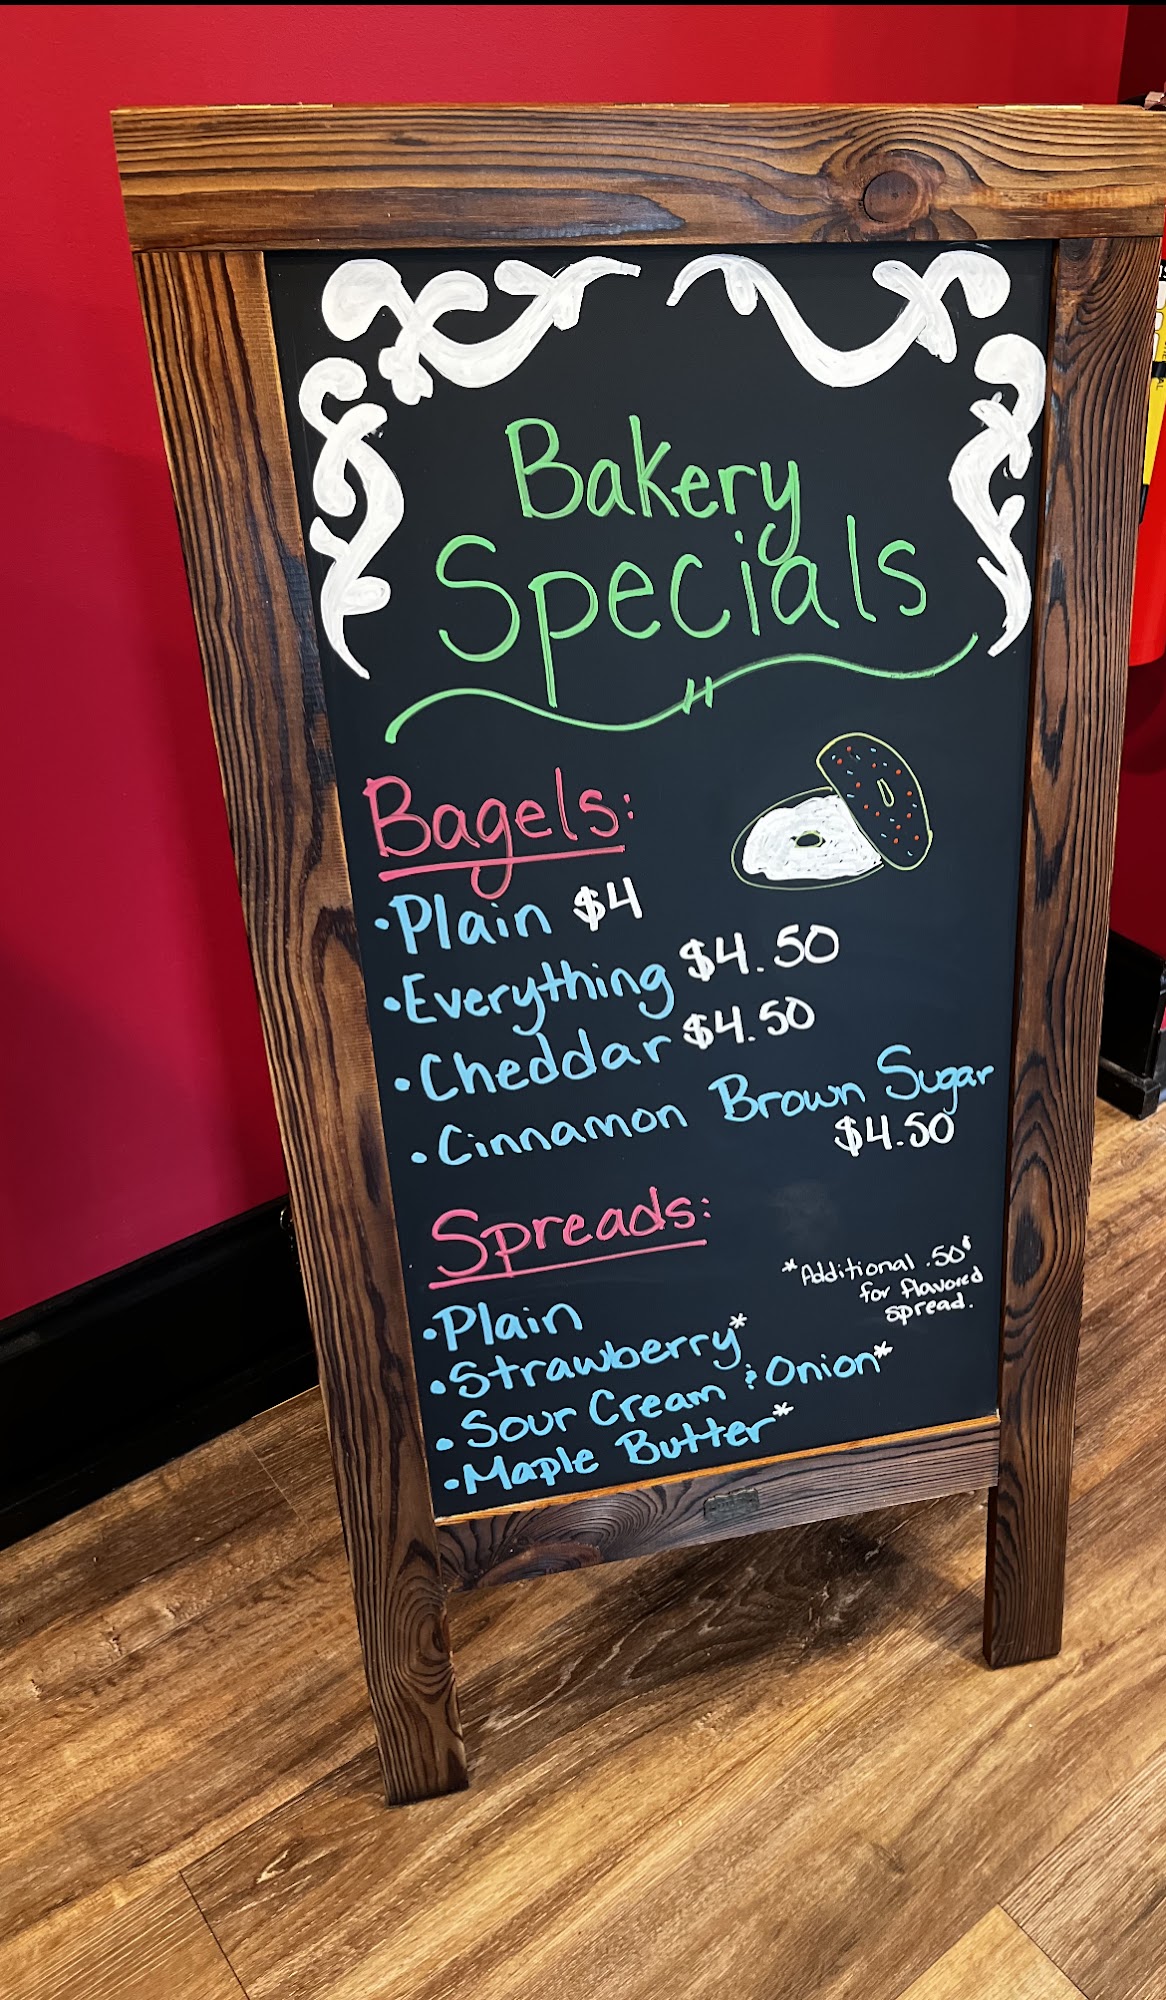 Bakery
Specials
Bagels:
•Plain $4
•Everything $4.50
•Cheddar $4.50
•Cinnamon Brown Sugar
$4.50
Spreads:
*Additional .50¢
for flavored
spread.
•Plain
•Strawberry*
•Sour Cream & Onion*
•Maple Butter*